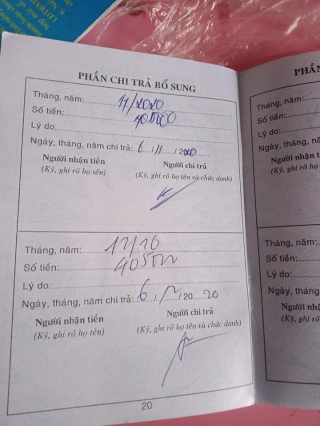 PHẦN CHI TRẢ BỔ SUNG
Tháng, năm: 11/2020
Số tiền: 405000
Lý do:
Ngày, tháng, năm chi trả: 6 / 11 / 2020
Người nhận tiền Người chi trả
(Ký, ghi rõ họ tên) (Ký, ghi rõ họ tên và chức danh)
Tháng, năm: 12/20
Số tiền: 405000
Lý do:
Ngày, tháng, năm chi trả: 6 / 12 / 20 20
Người nhận tiền Người chi trả
(Ký, ghi rõ họ tên) (Ký, ghi rõ họ tên và chức danh)
20
PHẦN
Tháng, năm:
Số tiền:
Lý do:
Ngày, thán
Người
(Ký, gh
Tháng, n
Số tiền:
Lý do:
Ngày, th
Ngườ
(Ký,